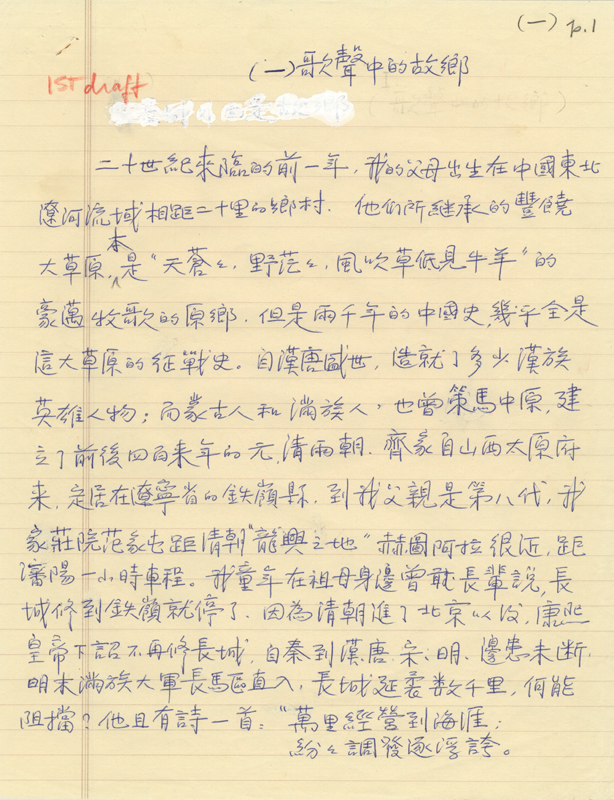 (一) p.1
(一)歌聲中的故鄉
1ST draft
二十世紀來臨的前一年，我的父母出生在中國東北
遼河流域相距二十里的鄉村．他們所繼承的豐饒
大草原，本是“天蒼々，野茫々，風吹草低見牛羊”的
豪邁牧歌的原鄉．但是兩千年的中國史，幾乎全是
這大草原的征戰史。自漢唐盛世，造就了多少漢族
英雄人物；而蒙古人和滿族人，也曾策馬中原，建
立了前後四百來年的元，清兩朝．齊家自山西太原府
來，定居在遼寧省的鉄嶺縣．到我父親是第八代，我
家莊院范家屯距清朝“龍興之地”赫圖阿拉很近，距
瀋陽一小時車程。我童年在祖母身邊曾耽長輩說，長
城修到鉄嶺就停了．因為清朝進了北京以後，康熙
皇帝下詔不再修長城，自秦到漢、唐、宋、明，邊患未断．
明末滿族大軍長馬區直入，長城延袤数千里，何能
阻擋？他且有詩一首：“萬里經營到海涯；
紛々調發逐浮誇。